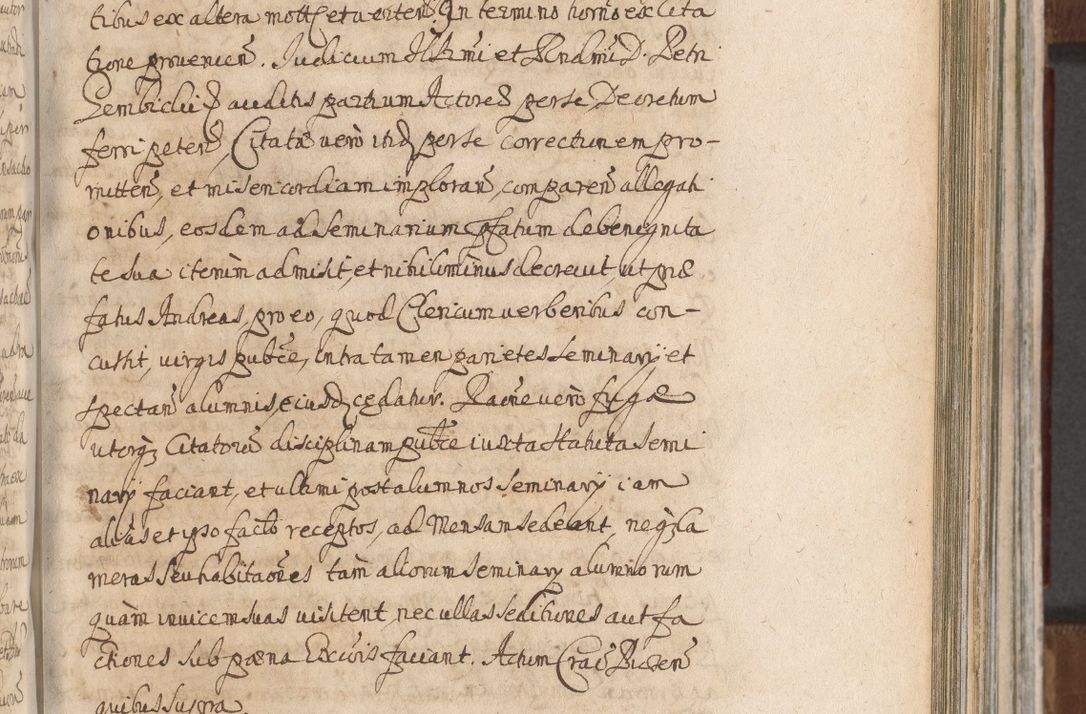 tibus ex altera mott et vertenẽ. In termino horno ex Cita
tione provenienẽ. Judicium Illrmi et Rndmi D. Petri
Gembicki auditis partium Actoreẽ per se Decretum
ferri petenẽ, Citatæ vero itidẽ per se correctionem pro-
mittenẽ, et misericordiam imploranẽ, comparenẽ allegati
onibus, eosdem ad Seminarium pfatum de benignita
te sua iterum admisit, et nihilominus decrevit, ut præ
fatus Andreas, pro eo, quod Clericum verberibus con-
cussit, virgis pubce, intra tamen parietes Seminarij et
spectanẽ alumnis eiusdẽ cedatur. Raone vero fugæ
uterq3 Citatorũ disciplinam pubce iuxta Statuta Semi
narij faciant, et ultimi post alumnos Seminarij iam
alias et ipso facto receptos, ad Mensam sedeant, neq3 Ca
meras seu habitaones tam aliorum Seminarij alumnorum
quàm invicem suas visitent, nec ullas seditiones aut fa
ctiones sub pæna Excõis faciant. Actum Crac Præsenẽ
quibus supra.